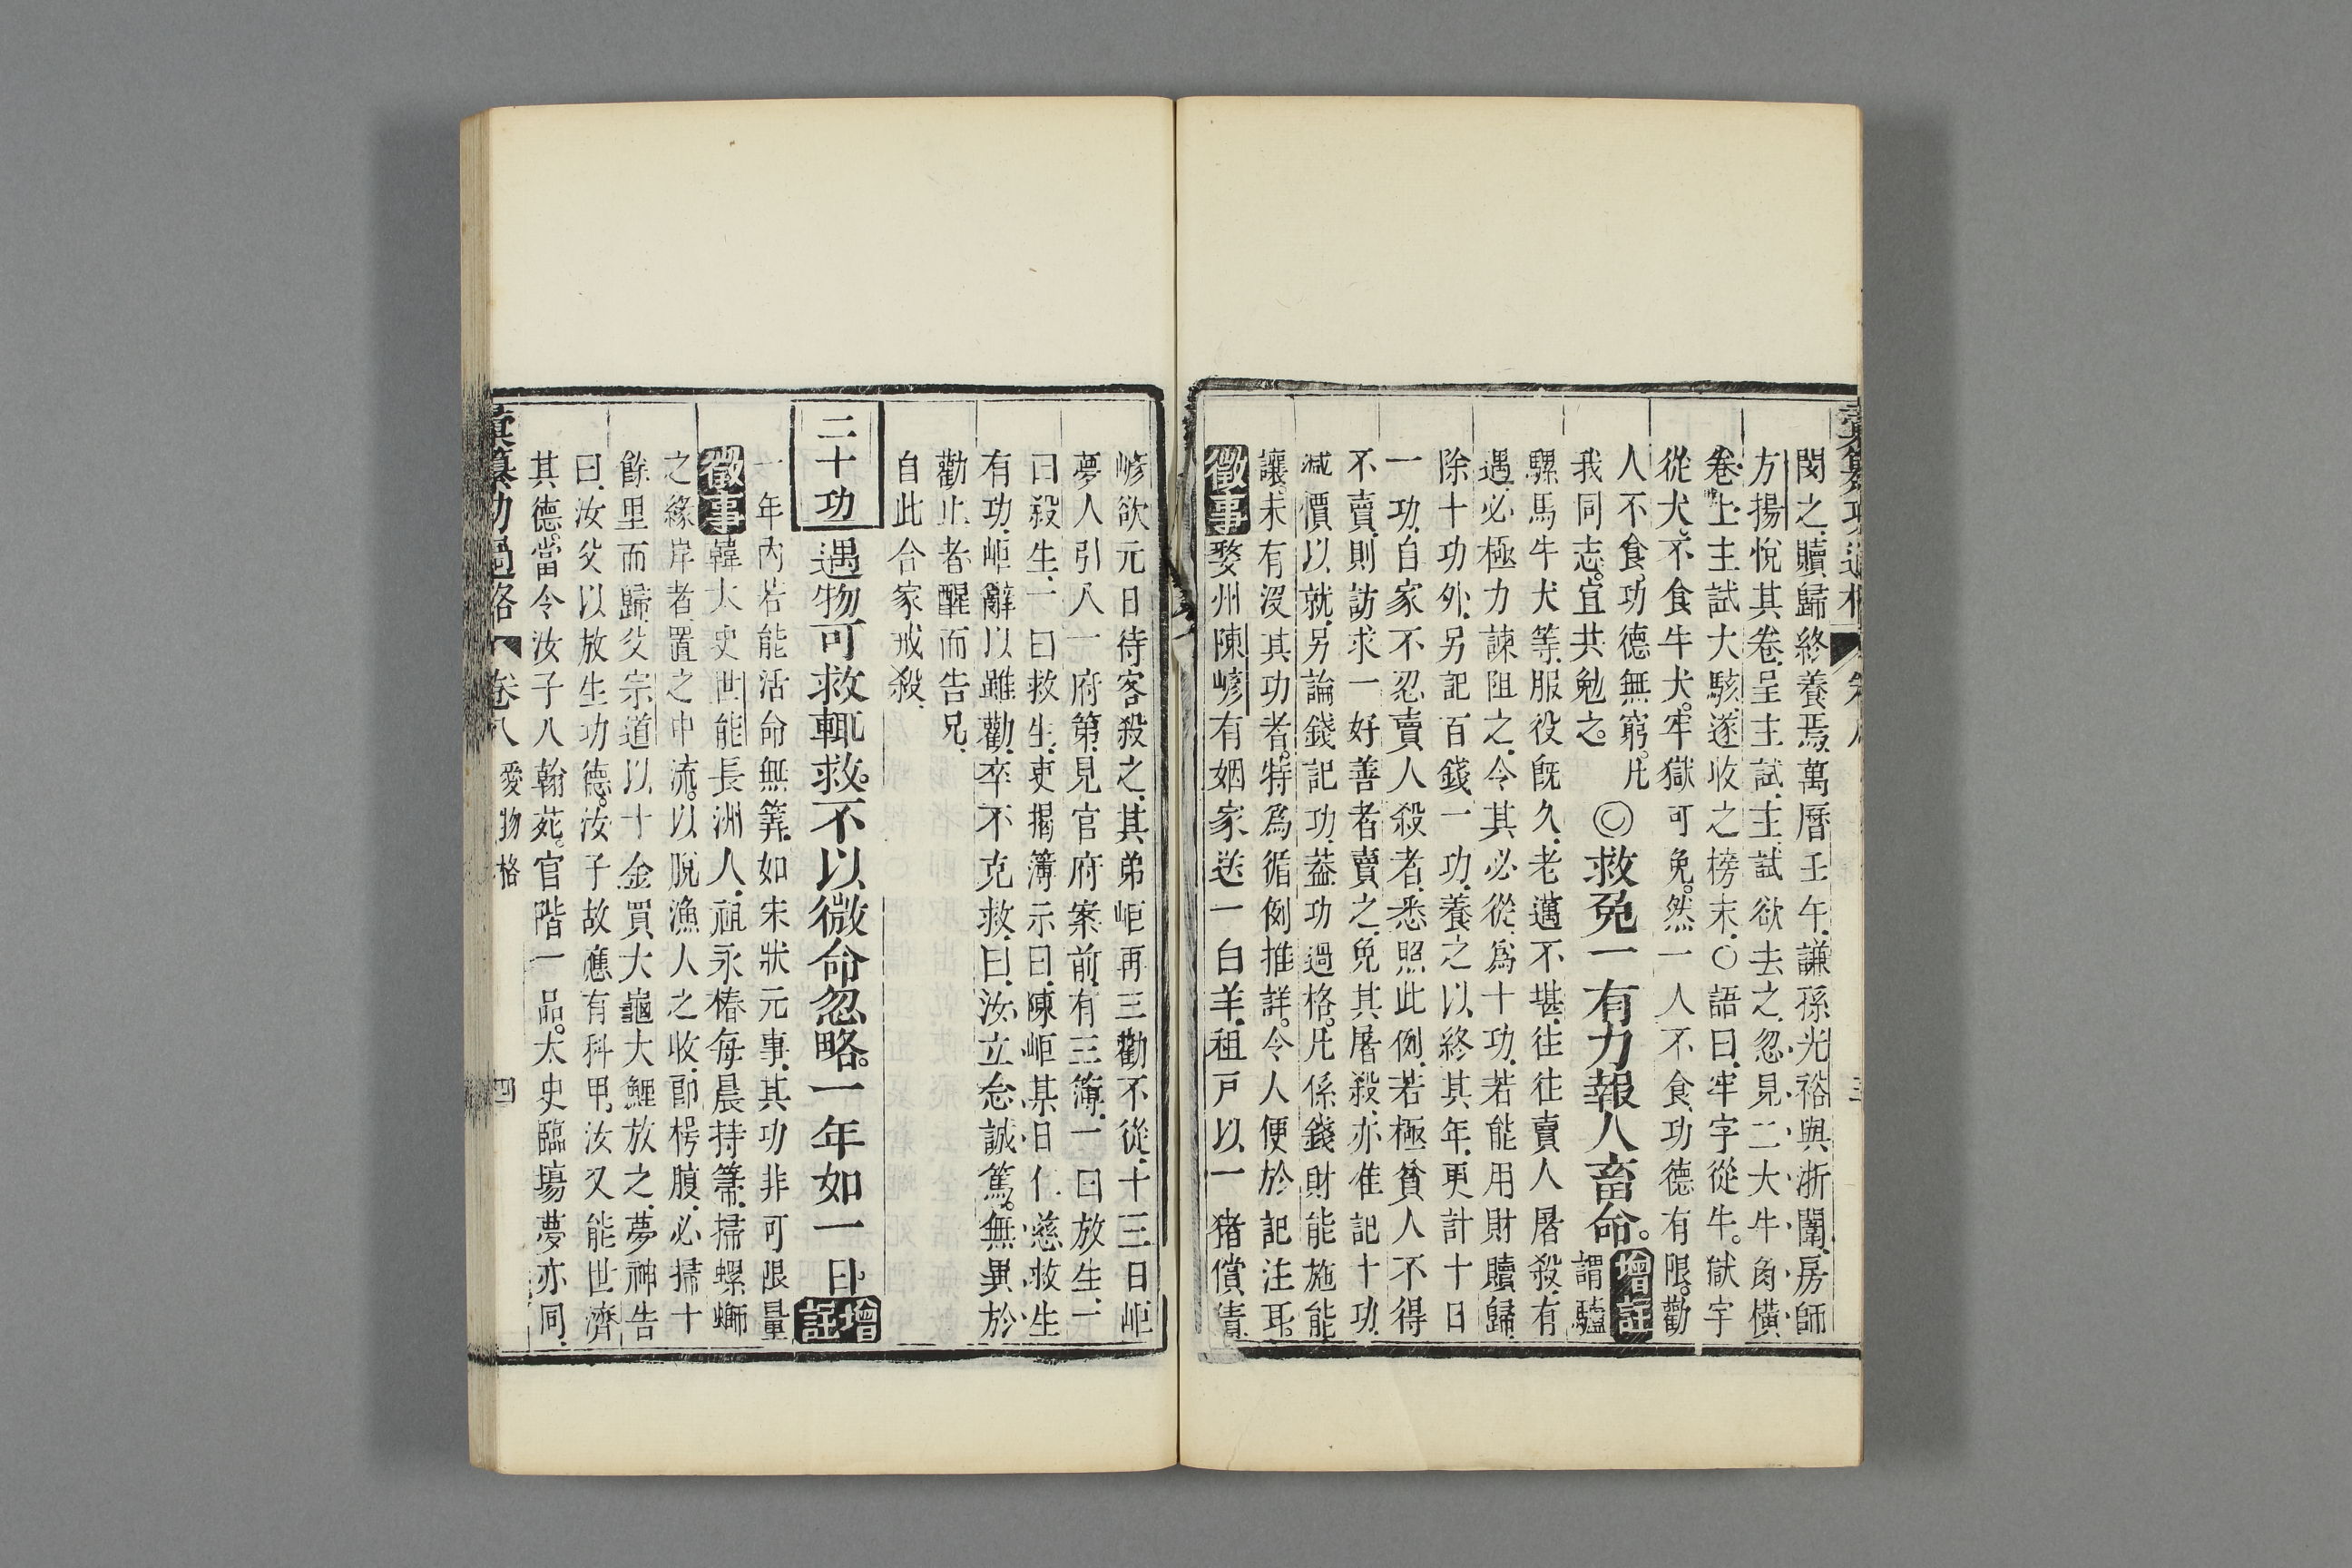 閔之贖歸終養焉萬曆壬午謙孫光裕與浙闈房師
方揚悅其卷呈主試主試欲去之忽見二大牛角橫
卷上主試大駭遂收之榜末○語曰牢字從牛獄字
從犬不食牛犬牢獄可免然一人不食功德有限勸
人不食功德無窮凡
我同志宜共勉之
◎救免一有力報人畜命增註謂驢
騾馬牛犬等服役旣久老邁不堪往往賣人屠殺有
遇必極力諫阻之令其必從爲十功若能用財贖歸
除十功外另記百錢一功養之以終其年更計十日
一功自家不忍賣人殺者悉照此例若極貧人不得
不賣則訪求一好善者賣之免其屠殺亦准記十功
減價以就另論錢記功葢功過格凡係錢財能施能
讓未有沒其功者特爲循例推詳令人便於記注耳
徵事婺州陳嵃有姻家送一白羊租戸以一猪償債
嵃欲元日待客殺之其弟岠再三勸不從十三日岠
夢人引入一府第見官府案前有三簿一曰放生一
曰殺生一曰救生吏揭簿示曰陳岠某日仁慈救生
有功岠辭以雖勸卒不克救曰汝立念誠篤無異於
勸止者醒而告兄
自此合家戒殺
二十功 遇物可救輒救不以微命忽略一年如一日增註
一年內若能活命無筭如宋狀元事其功非可限量
徵事韓太史世能長洲人祖永椿每晨持箒掃螺螄
之緣岸者置之中流以脫漁人之收卽枵腹必掃十
餘里而歸父宗道以十金買大龜大鯉放之夢神告
曰汝父以放生功德汝子故應有科甲汝又能世濟
其德當令汝子入翰苑官階一品太史臨塲夢亦同
彙纂功過格 卷八 愛物格 四